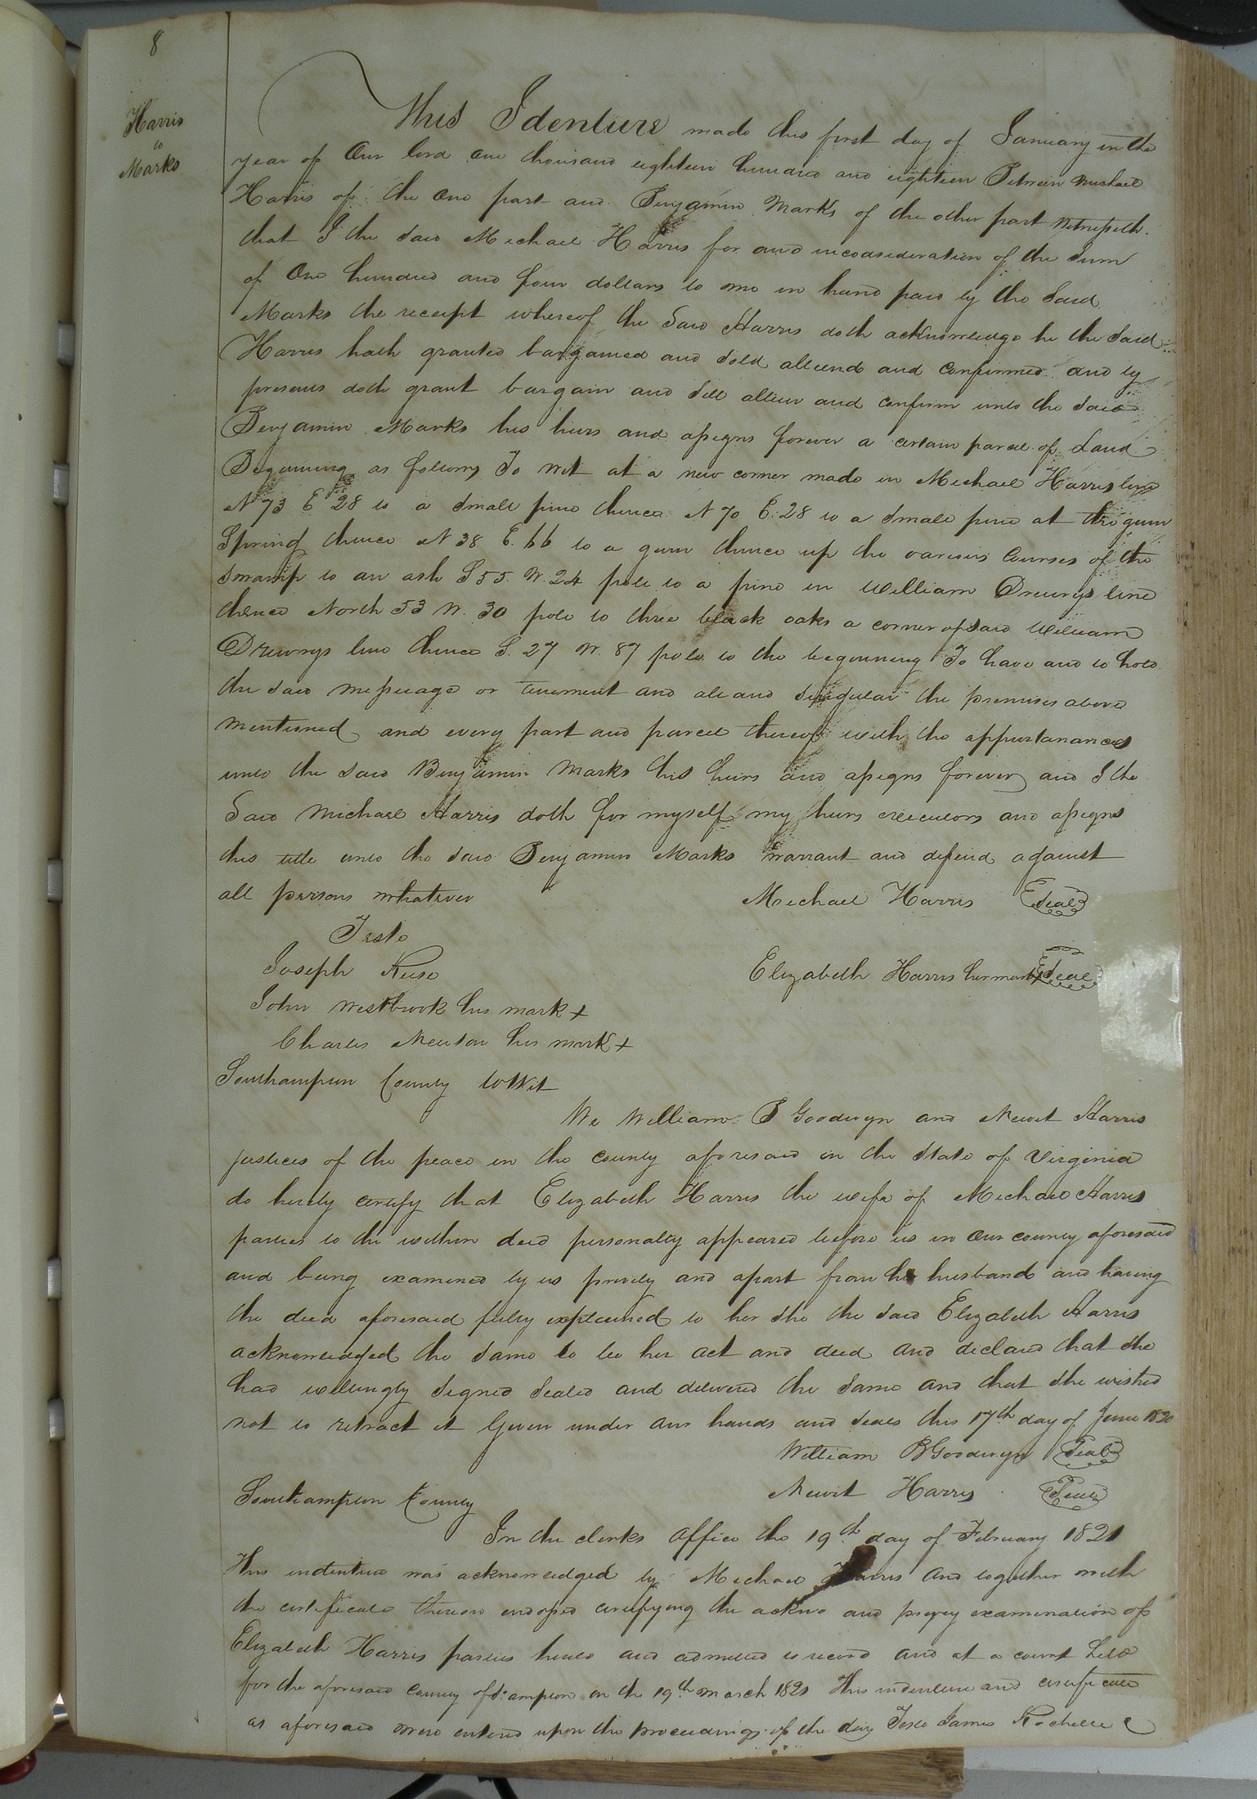 8
Harris
to
Marks
This Identure made this first day of January in the
year of Our lord one thousand eighteen hundred and eighteen Between Michael
Harris of the one part and Benjamin Marks of the other part Witnesseth
that I the said Michael Harris for and inconsideration of the Sum
of One hundred and four dollars to me in hand paid by the Said
Marks the receipt whereof the Said Harris doth acknowledge he the Said
Harris hath granted bargained and Sold aliend and Confirmed and by
presents doth grant bargain and Sell alien and Confirm unto the Said
Benjamin Marks his heirs and assigns forever a certain parcel of Land
Beginning as follows To wit at a new corner made in Michael Harris line
N 73 E 28 to a Small pine thence N 70 E. 28 to a Small pine at the gum
Spring thence N 38 E. 66 to a gum thence up the various Courses of the
Swamp to an ash S 55 W. 24 pole to a pine in William Drewrys line
thence North 53 W. 30 pole to three black oaks a corner of said William
Drewrys line thence S. 27 W. 87 pole to the beginning To have and to hold
the said messuage or tenement and all and Singular the premises above
mentioned and every part and parcel thereof with the appurtanances
unto the said Benjamin Marks his heirs and assigns forever and I the
Said Michael Harris doth for myself my heirs executors and assigns
this title unto the Said Benjamin Marks warrant and defend against
all persons whatever
Michael Harris Seal
Teste
Joseph
Elizabeth Harris her mark + Seal
John Westbrook his mark +
Charles Newton his mark +
Southampton County to Wit
We William B Goodwyn and Newit Harris
justices of the peace in the county aforesaid in the State of Virginia
do hereby certify that Elizabeth Harris the wife of Michael Harris
parties to the within deed personally appeared before us in our county aforesaid
and being examined by us privily and apart from her husband and having
the deed aforesaid fully explained to her She the said Elizabeth Harris
acknowledged the Same to be her act and deed and declared that She
had willingly Signed Sealed and delivered the Same and that She wished
not to retract it Given under our hands and Seals this 17th day of June 1820
William B Goodwyn Seal
Newit Harris Seal
Southampton County
In the clerks office the 19th day of February 1821
This indenture was acknowledged by Michael Harris and together with
the certificate thereon endorsed certifying the and privy examination of
Elizabeth Harris parties hereto and admitted to record and at a court held
for the aforesaid County of S:ampton on the 19th March 1821 This indenture and certificate
as aforesaid were entered upon the proceedings of the day Teste James Rochelle C